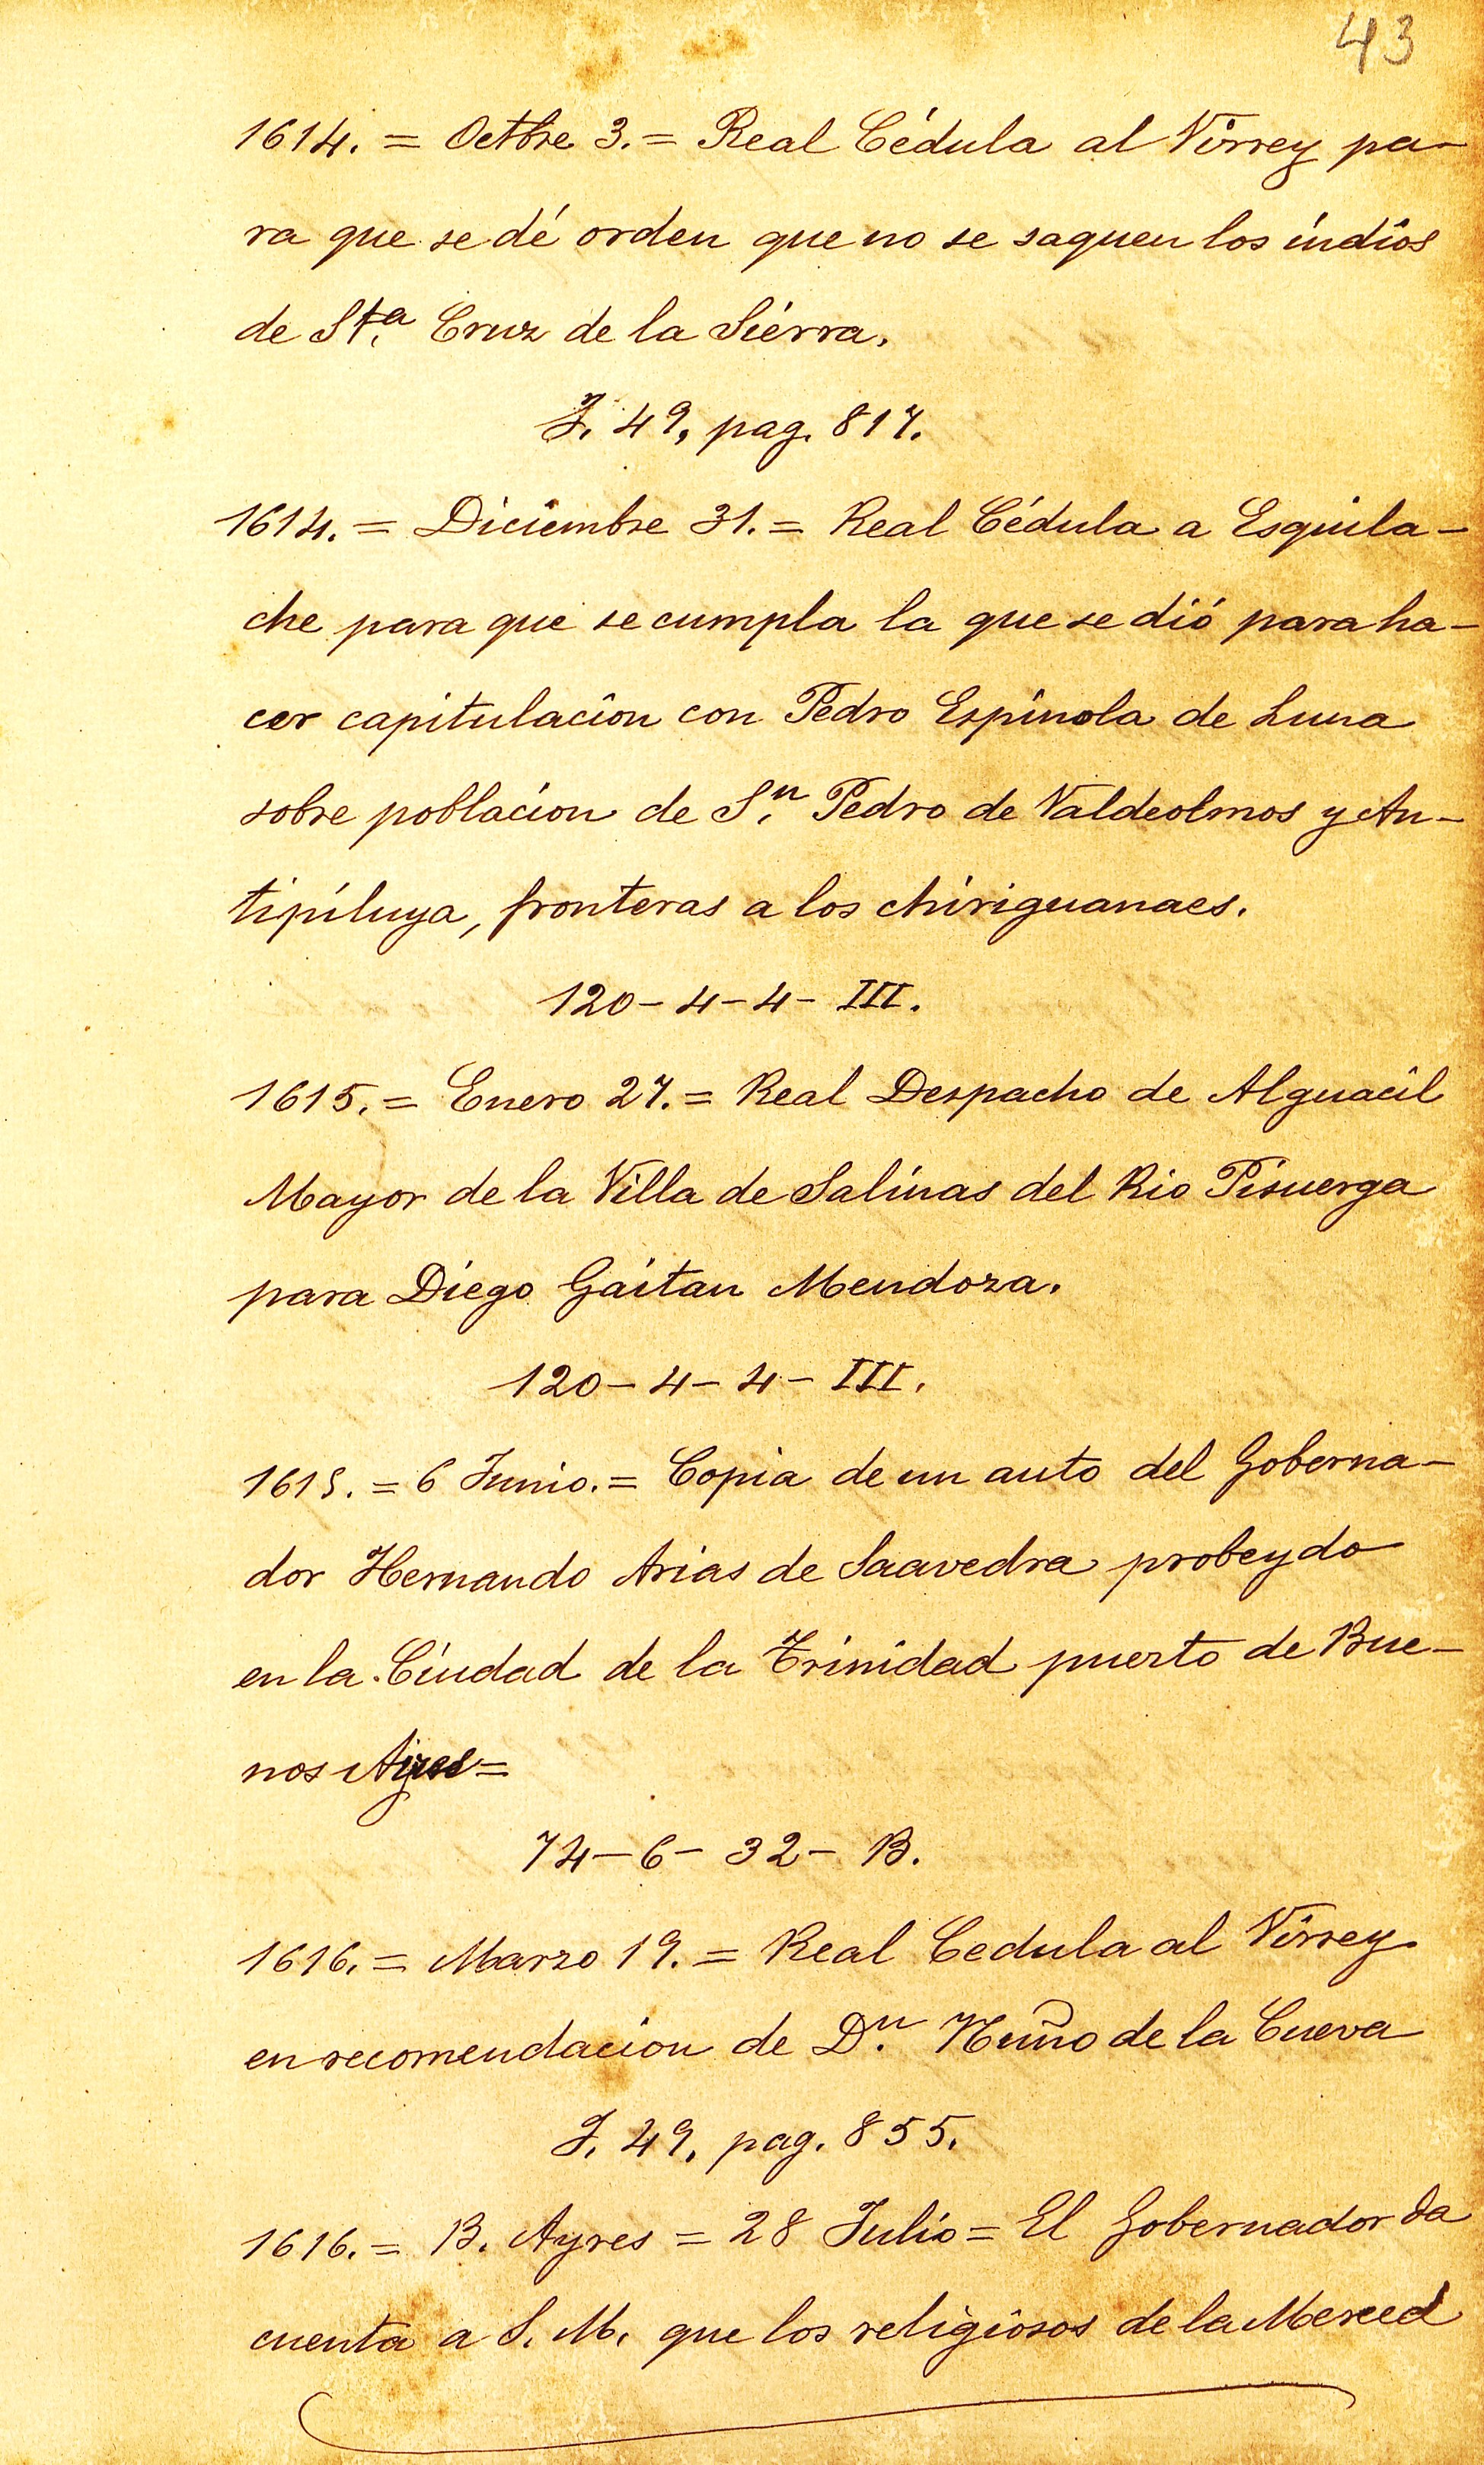 43
1614. = Octbre 3. = Real Cédula al Virrey pa-
ra que se dé orden que no se saquen los indios
de Sta. Cruz de la Sierra.
J. 49, pag. 817.
1614. = Diciembre 31. = Real Cédula a Esquila-
che para que se cumpla la que se dió para ha-
cer capitulacion con Pedro Espinola de Luna
sobre poblacion de Sn. Pedro de Valdeolmos y An-
tipiluya, fronteras a los chiriguanaes.
120-4-4-III.
1615. = Enero 27. = Real Despacho de Alguacil
Mayor de la Villa de Salinas del Rio Pisuerga
para Diego Gaitan Mendoza.
120-4-4-III.
1615. = 6 Junio. = Copia de un auto del Goberna-
dor Hernando Arias de Saavedra probeydo
en la Ciudad de la Trinidad puerto de Bue-
nos Ayres =
74-6-32-B.
1616. = Marzo 19. = Real Cedula al Virrey
en recomendacion de Dn. Nuño de la Cueva
J. 49, pag. 855.
1616. = B. Ayres = 28 Julio = El Gobernador da
cuenta a S. M. que los religiosos de la Merced